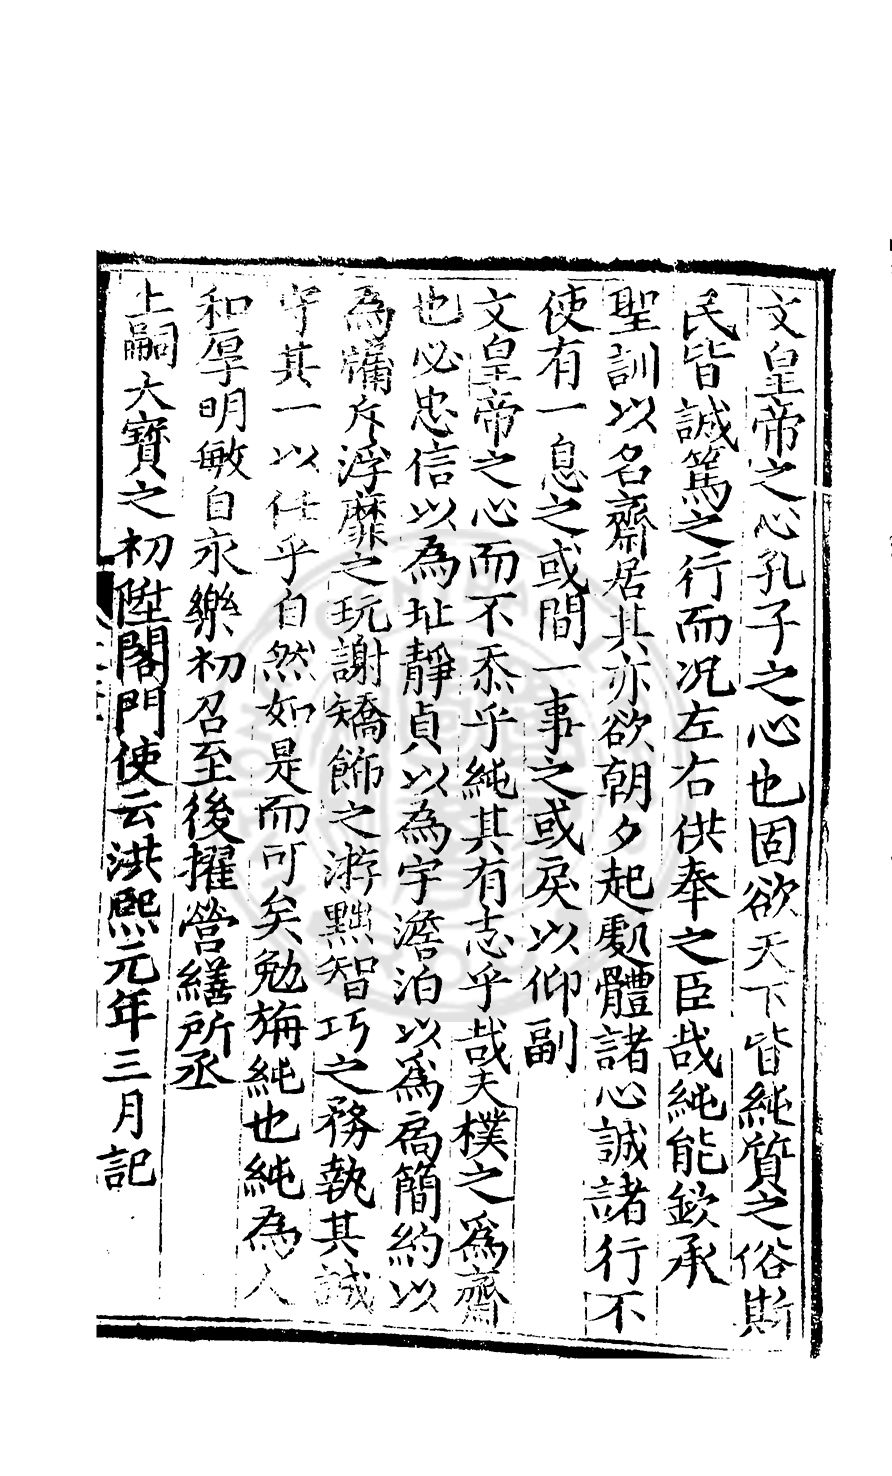 文皇帝之心孔子之心也固欲天下皆純質之俗斯
民皆誠篤之行而况左右供奉之臣哉純能欽承
聖訓以名齋居其亦欲朝夕起處體諸心誠諸行不
使有一息之或間一事之或戾以仰副
文皇帝之心而不忝乎純其有志乎哉夫樸之爲齋
也必忠信以為址靜貞以為宇澹泊以爲扃簡約以
為牖斥浮靡之玩謝矯飾之游黜智巧之務執其誠
守其一以任乎自然如是而可矣勉旃純也純為人
和厚明敏自永樂初召至後擢營繕所丞
上嗣大寶之初陞閣門使云洪熙元年三月記